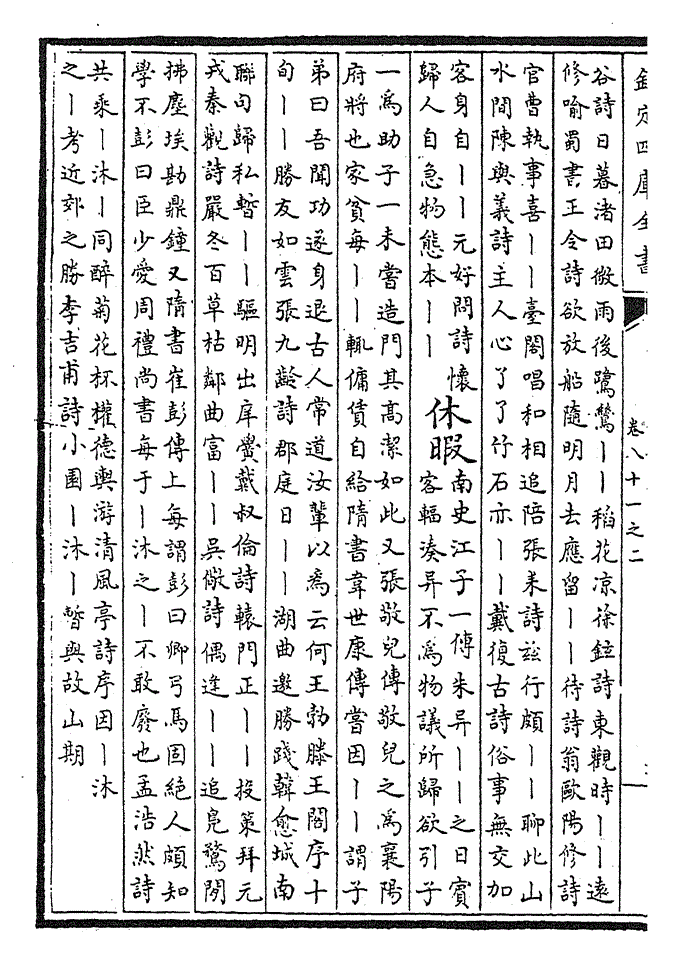 欽定四庫全書
卷八十一之二
谷詩日暮渚田微雨後鷺鶿丨丨稻花凉徐鉉詩東觀時丨丨遠
修喻蜀書王令詩欲放船隨明月去應留丨丨待詩翁歐陽修詩
官曹執事喜丨丨臺閣唱和相追陪張耒詩兹行頗丨丨聊此山
水間陳與義詩主人心了了竹石亦丨丨戴復古詩俗事無交加
客身自丨丨元好問詩懷
歸人自急物態本丨丨
休暇
南史江子一傳朱异丨丨之日賓
客輻湊异不為物議所歸欲引子
一為助子一未嘗造門其高潔如此又張敬兒傳敬兒之為襄陽
府將也家貧每丨丨輒傭賃自給隋書韋世康傳嘗因丨丨謂子
弟曰吾聞功遂身退古人常道汝輩以為云何王勃滕王閣序十
旬丨丨勝友如雲張九齡詩郡庭日丨丨湖曲邀勝踐韓愈城南
聯句歸私暫丨丨驅明出庠黌戴叔倫詩轅門正丨丨投策拜元
戎秦觀詩嚴冬百草枯鄰曲富丨丨吳儆詩偶逢丨丨追鳧鶩閒
拂塵埃勘鼎鐘又隋書崔彭傳上每謂彭曰卿弓馬固絕人頗知
學不彭曰臣少愛周禮尚書每于丨沐之丨不敢廢也孟浩然詩
共乘丨沐丨同醉菊花杯權德輿游清風亭詩序因丨沐
之丨考近郊之勝李吉甫詩小園丨沐丨暫與故山期